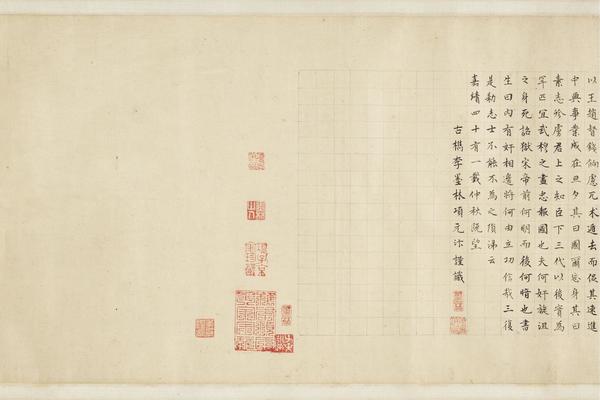 以王趙督錢餉慮兀朮遁去而促其速進
中興事業成在旦夕其曰國爾忘身其曰
素志殄虜君上之知臣下三代以後實為
罕匹宜武穆之盡忠報國也夫何奸旋沮
之身死詔獄宋帝前何明而後何暗也書
生曰內有奸相邊將何由立功信哉三復
是勅志士不能不為之隕涕云
嘉靖四十有一載仲秋既望
古檇李墨林項元汴謹識
項子京家珍藏